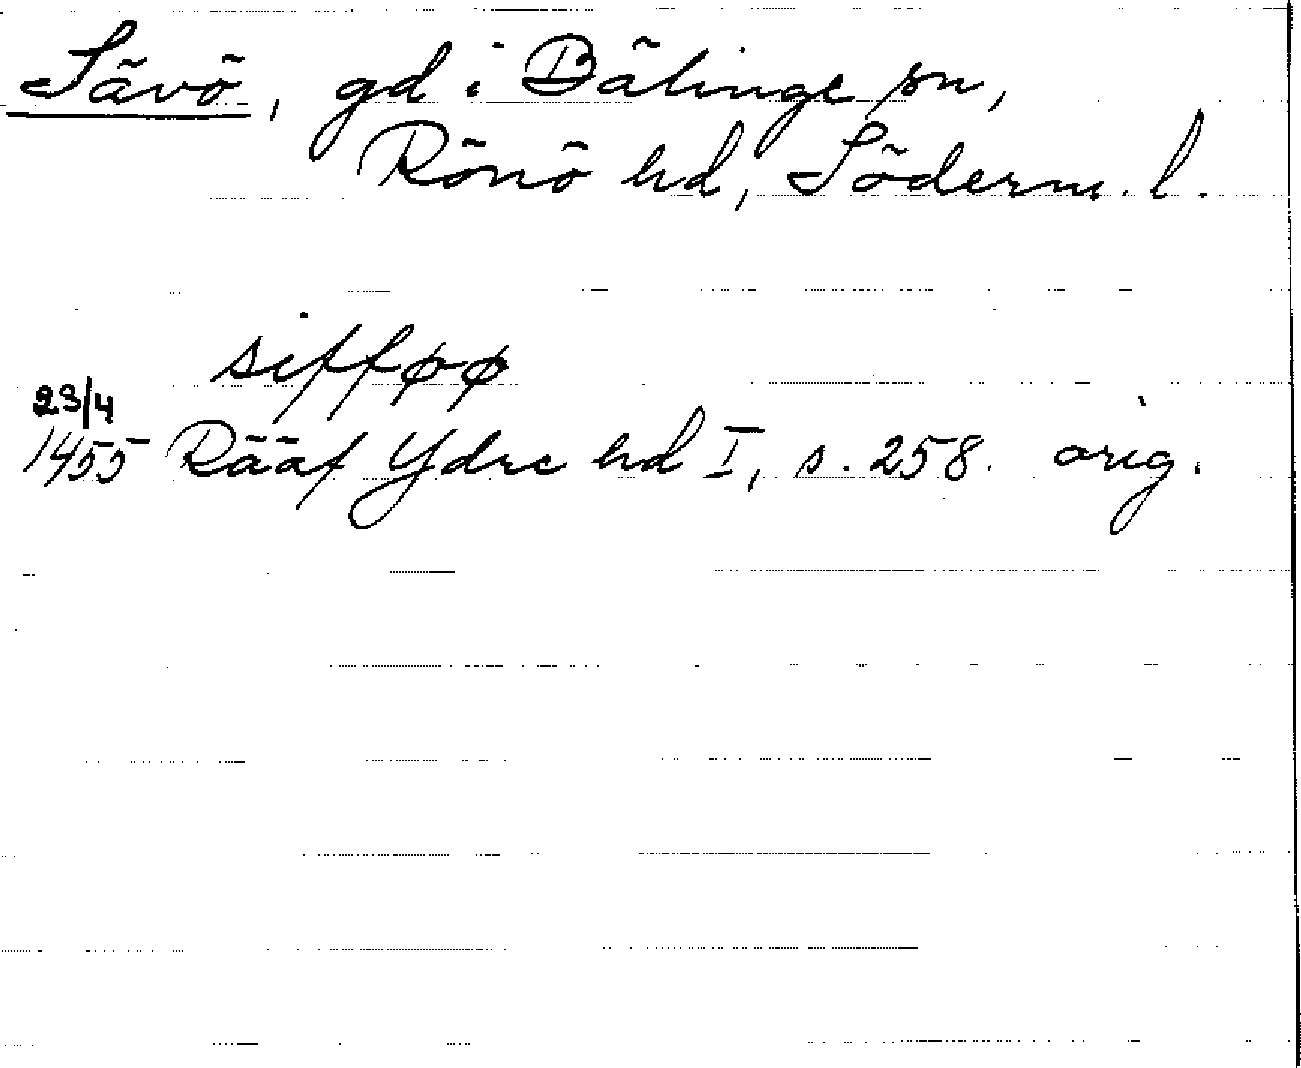 Sävö, gd i Bälinge sn,
Rönö hd, Söderm. l.
sifføø
23/4
1455 Rääf Ydre hd I, s. 258. orig.